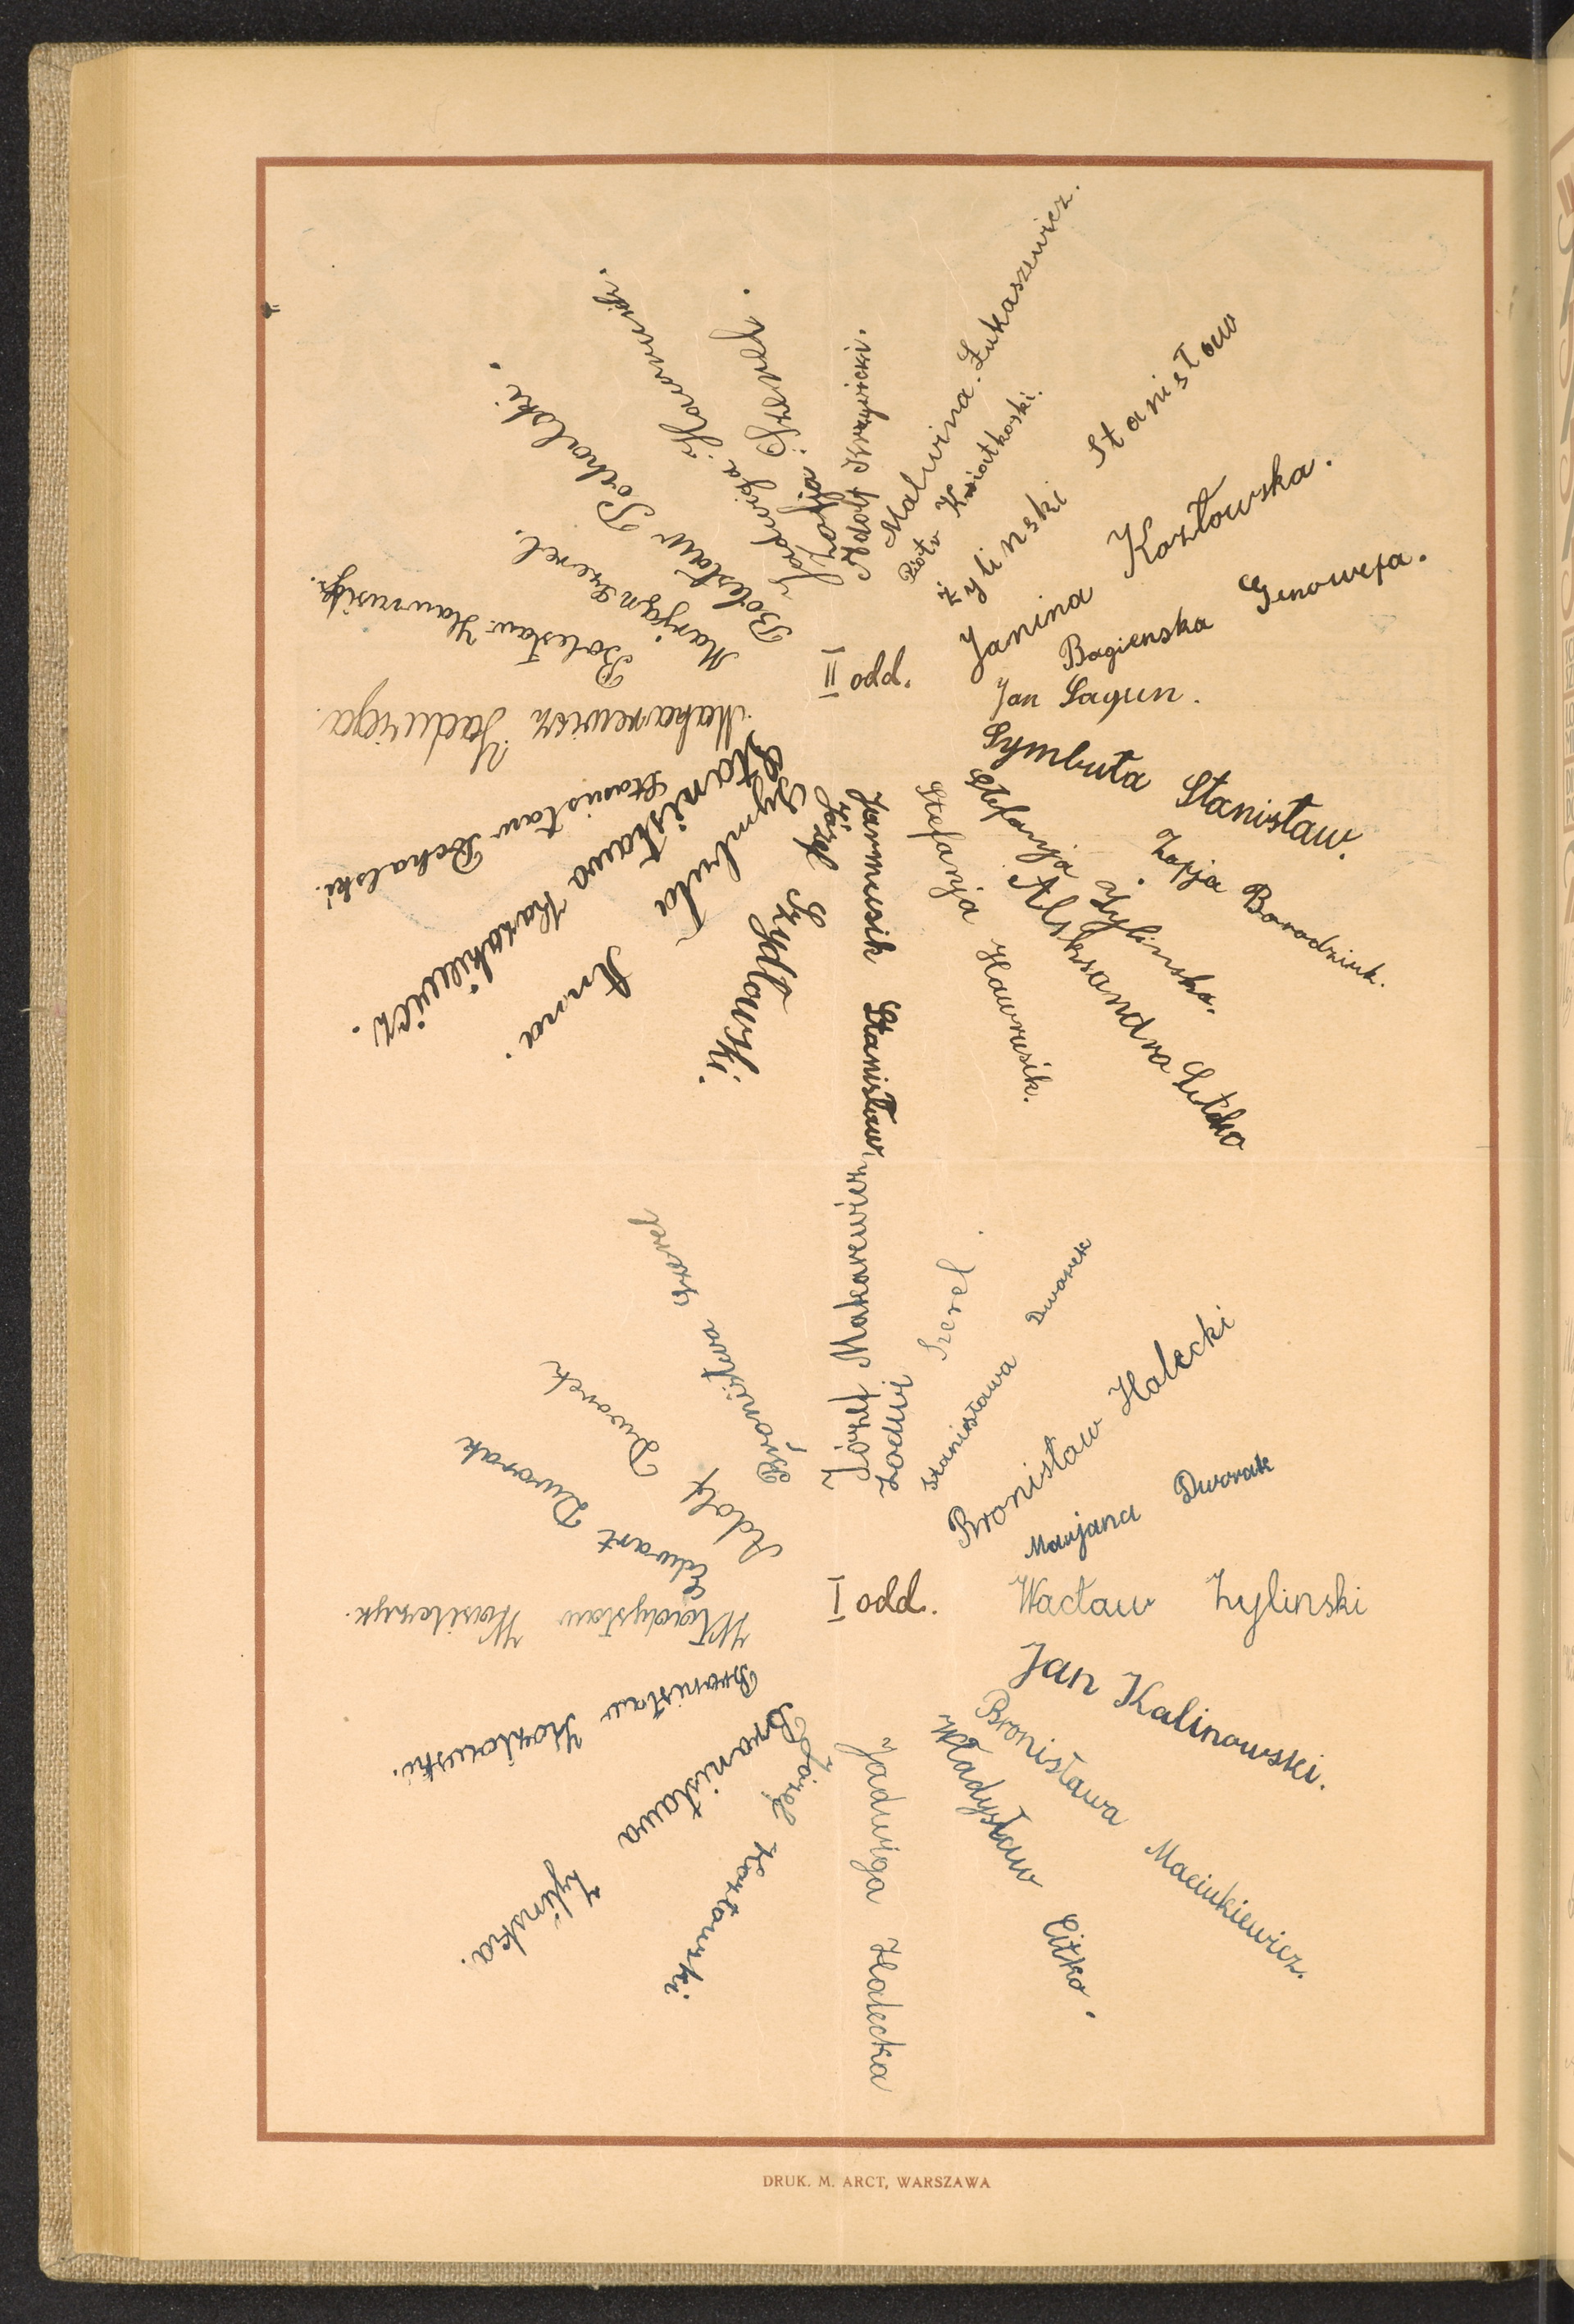 II odd.
Adolf Krajewicki.
Malwina Łukaszewicz.
Piotr Kwiatkoski.
Żylinski Stanisłow
Janina Kozłowska.
Bagienska Genowefa.
Jan Sagun.
Symbuła Stanisław.
Zofja Borodziuk.
Stefanja Żylinska.
Aleksandra Litko
Stefanja Hawrusik.
Jarmusik Stanisław
Józef Szydłowski.
Symbuła Anna.
Stanisława Kazakiewicz.
Stanisław Pohalski.
Makarewicz Jadwiga.
Bolesław Hawrusik.
Marjan Szerel.
Bolesław Pohalski.
Jadwiga Hawrusik.
I odd.
Józef Makarewicz
Lodwi Szerel.
Stanisława Dworek
Bronisław Halecki
Marjana Dworak
Wacław Zylinski
Jan Kalinowski.
Bronisława Maciukiewicz.
Władysław Citko.
Jadwiga Halecka
Józef Kozłowski
Bronisława Żylinska.
Bronisław Kozłowski.
Władysław Wasilczyk.
Edwart Dworak
Adolf Dworek
Bronisława Szerel
DRUK. M. ARCT, WARSZAWA